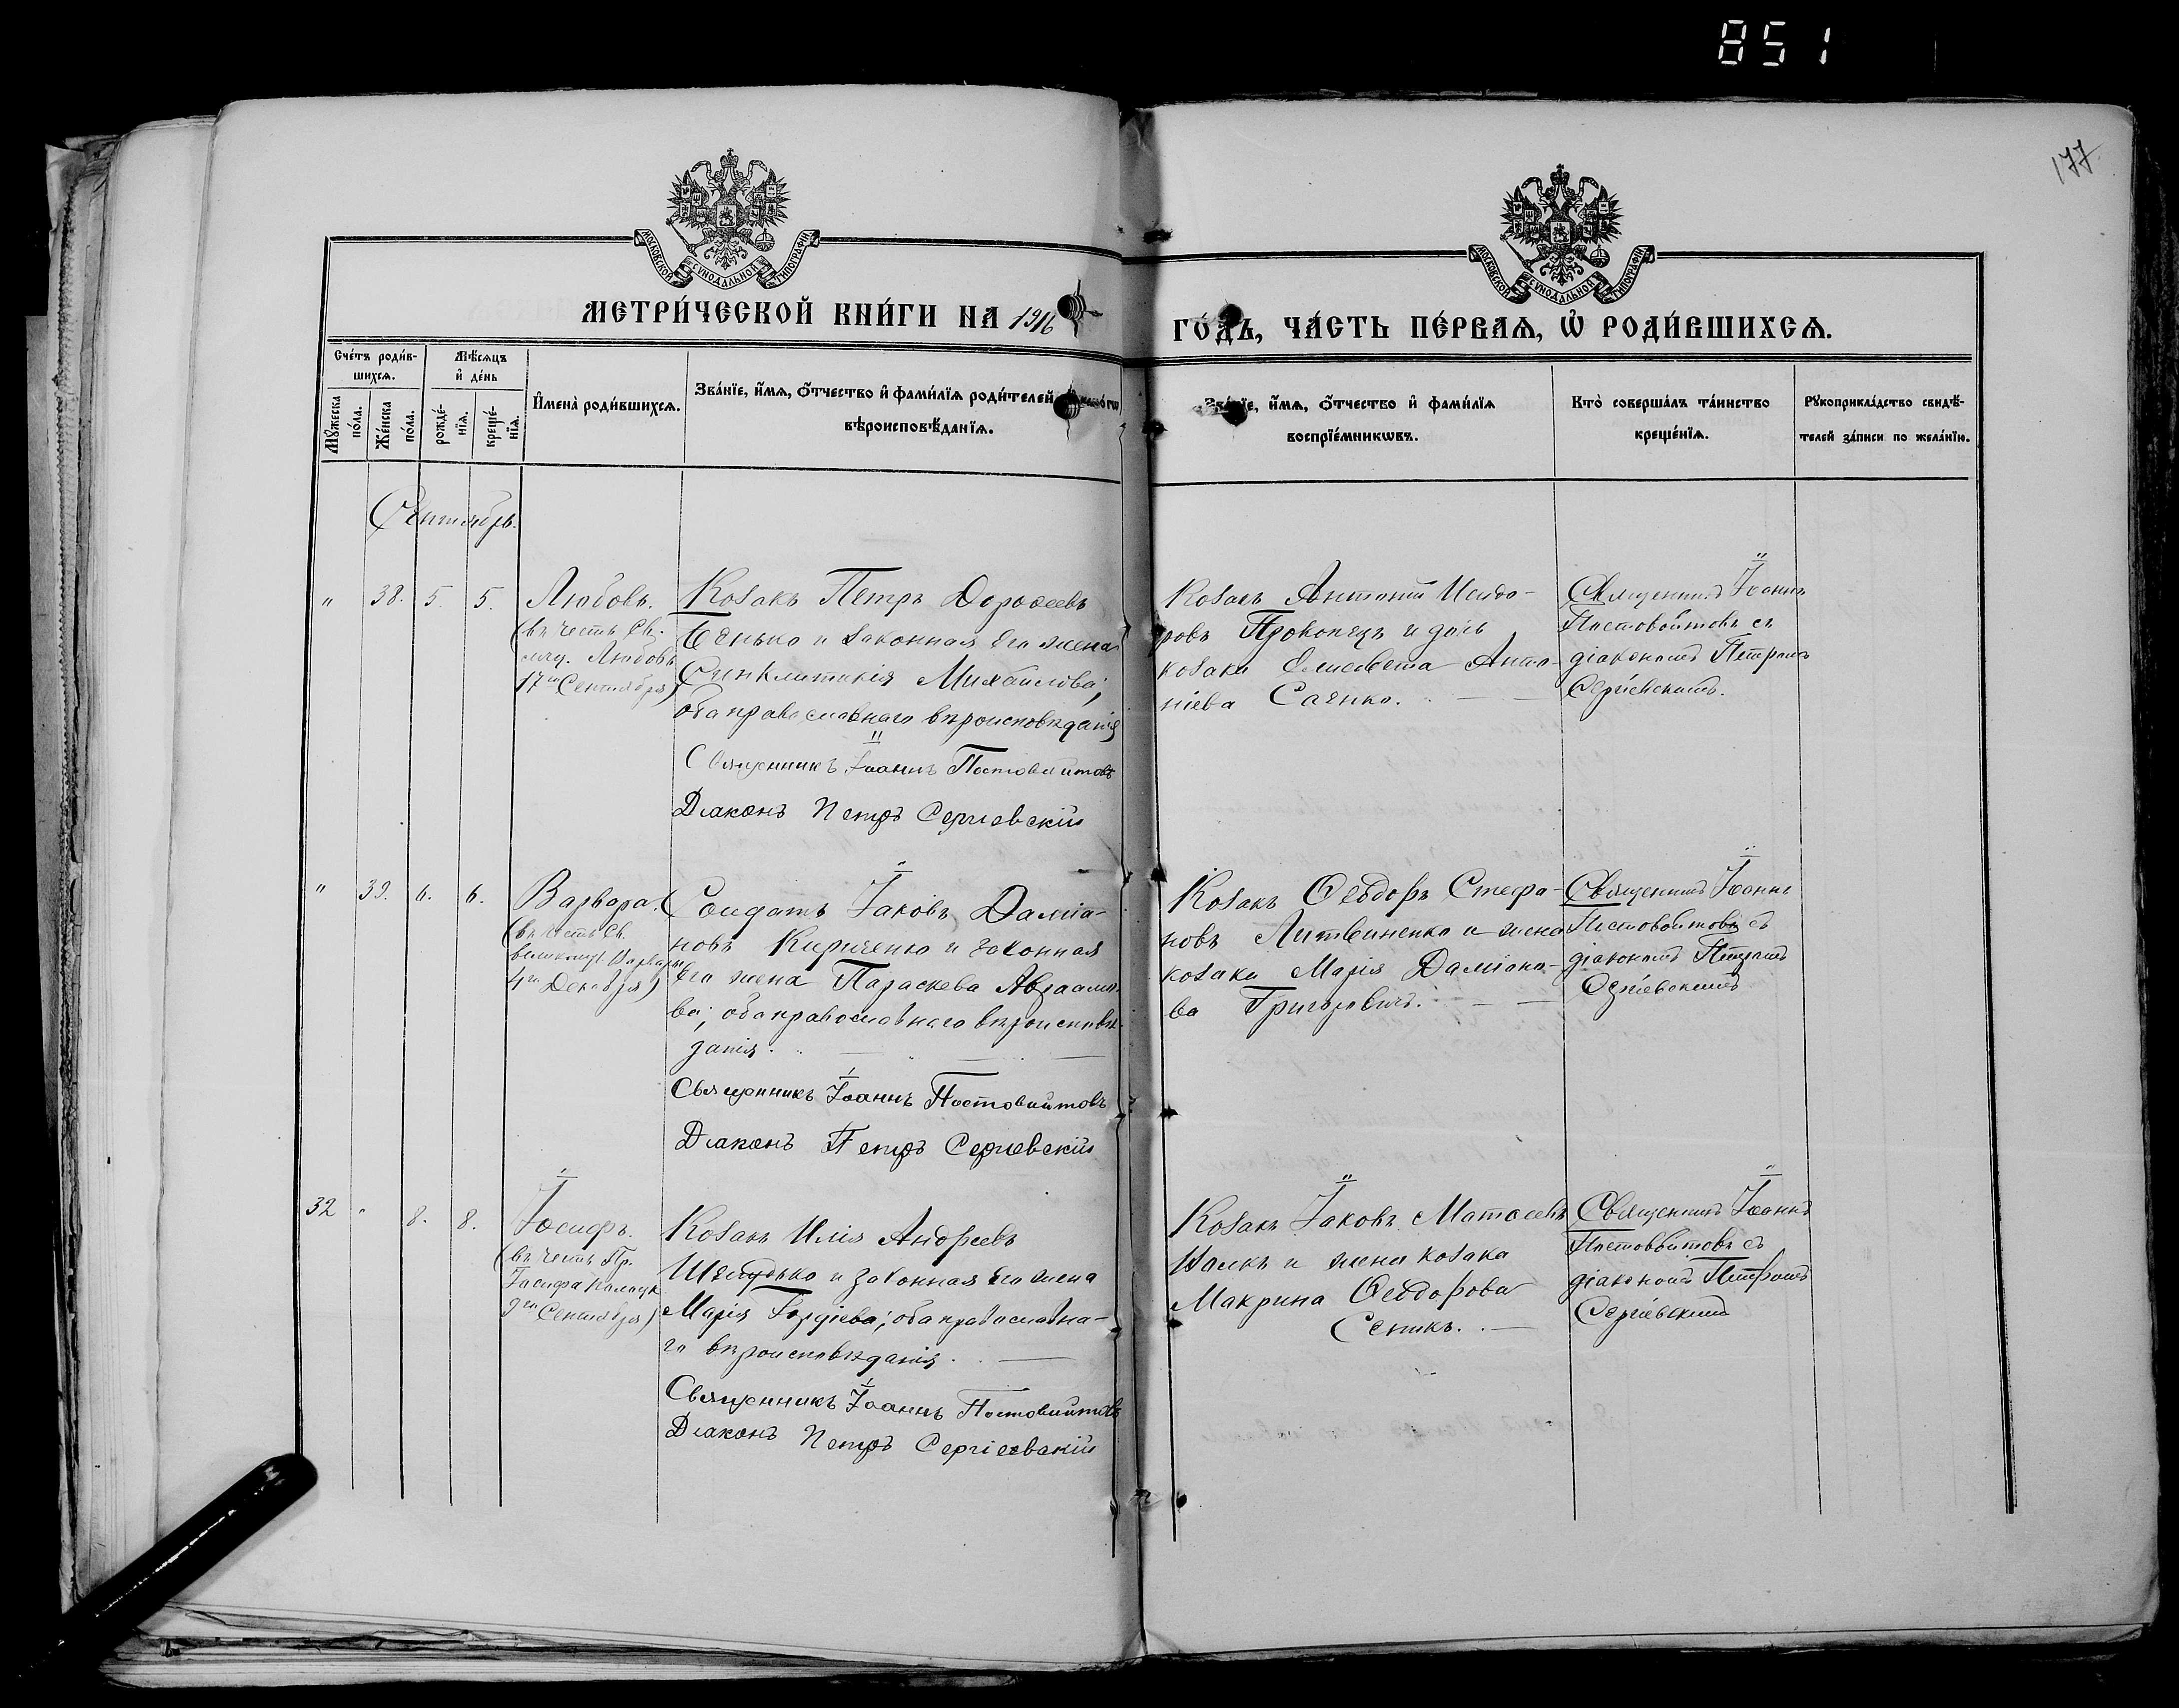 851
177
МОСКОВСКОЙ СѴНОДАЛЬНОЙ ТИПОГРАФІИ
МОСКОВСКОЙ СѴНОДАЛЬНОЙ ТИПОГРАФІИ
МЕТРИ́ЧЕСКОЙ КНИ́ГИ НА 1916
ГО́ДЪ, ЧА́СТЬ ПЕ́РВАѦ, Ѿ РОДИ́ВШИХСѦ.
Сче́тъ роди́в-
шихсѧ.
Мꙋ́жеска по́ла.
Же́нска по́ла.
Мѣ́сѧцъ
и҆ де́нь
рожде́-
нїѧ.
креще́-
нїѧ.
И҆мена̀ роди́вшихсѧ.
Зва́нїе, и҆́мѧ, ѻ҆́тчество и҆ фами́лїѧ роди́телей
вѣроисповѣ́данїѧ.
Зва́нїе, и҆́мѧ, ѻ҆́тчество и҆ фами́лїѧ
воспрїе́мникѡвъ.
Кто̀ соверша́лъ та́инство
креще́нїѧ.
Рꙋкоприкла́дство свидѣ́-
телей за́писи по жела́нїю.
Сентябрь.
" 38. 5. 5.
Любовь.
(въ честь Св.
муч. Любовь
17го Сентября)
Козакъ Петръ Дороѳеевъ
Бенько и законная его жена
Синклитикія Михайлова;
оба православнаго вѣроисповѣданія
Священникъ Іоаннъ Постовойтовъ
Діаконъ Петръ Сергіевскій
Козакъ Антоній Исидо-
ровъ Прокопецъ и дочь
козака Елисавета Анто-
ніева Саенко.
Священникъ Іоаннъ
Постовойтовъ съ
діакономъ Петромъ
Сергіевскимъ.
" 39. 6. 6.
Варвара.
(въ честь Св.
великомуч. Варвары
4го Декабря)
Солдатъ Іаковъ Даміа-
новъ Кириченко и законная
его жена Параскева Авраамо-
ва; оба православнаго вѣроисповѣ-
данія.
Священникъ Іоаннъ Постовойтовъ
Діаконъ Петръ Сергіевскій
Козакъ Ѳеодоръ Стефа-
новъ Литвиненко и жена
козака Марія Даміано-
ва Григоровичъ.
Священникъ Іоаннъ
Постовойтовъ съ
діакономъ Петромъ
Сергіевскимъ
32 " 8. 8.
Іосифъ.
(въ честь Пр.
Іосифа
9го Сентября)
Козакъ Илія Андреевъ
и законная его жена
Марія Гордіева; оба православна-
го вѣроисповѣданія.
Священникъ Іоаннъ Постовойтовъ
Діаконъ Петръ Сергіевскій
Козакъ Іаковъ Матѳеевъ
и жена козака
Макрина Ѳеодорова
Сеникъ.
Священникъ Іоаннъ
Постовойтовъ съ
діакономъ Петромъ
Сергіевскимъ